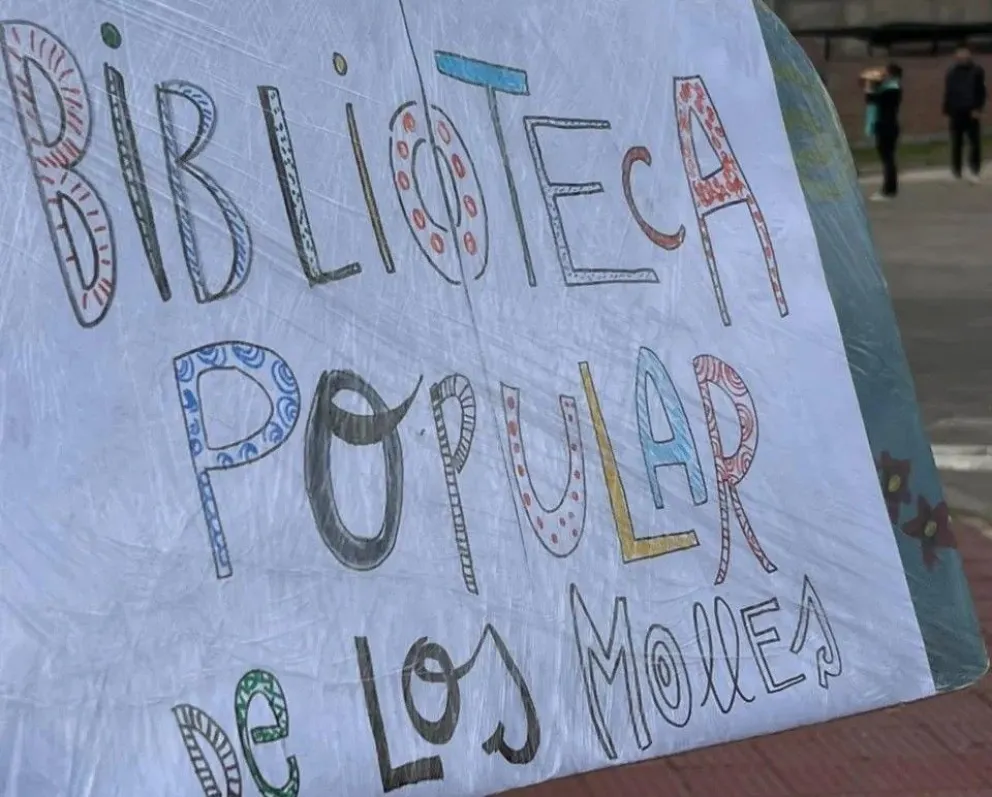 BiBLiOTEcA
POPULAR
De LOS MOllES